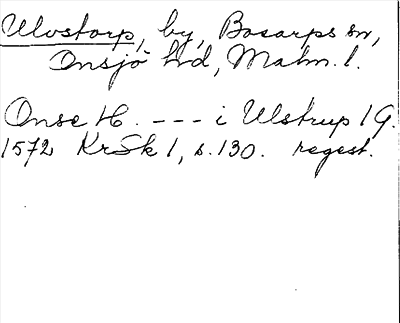 Ulvstorp, by, Bosarps sn,
Onsjö hd, Malm. l.
Onse H. --- i Ulstrup 1 G.
1572 KrSk 1, s. 130. regest.